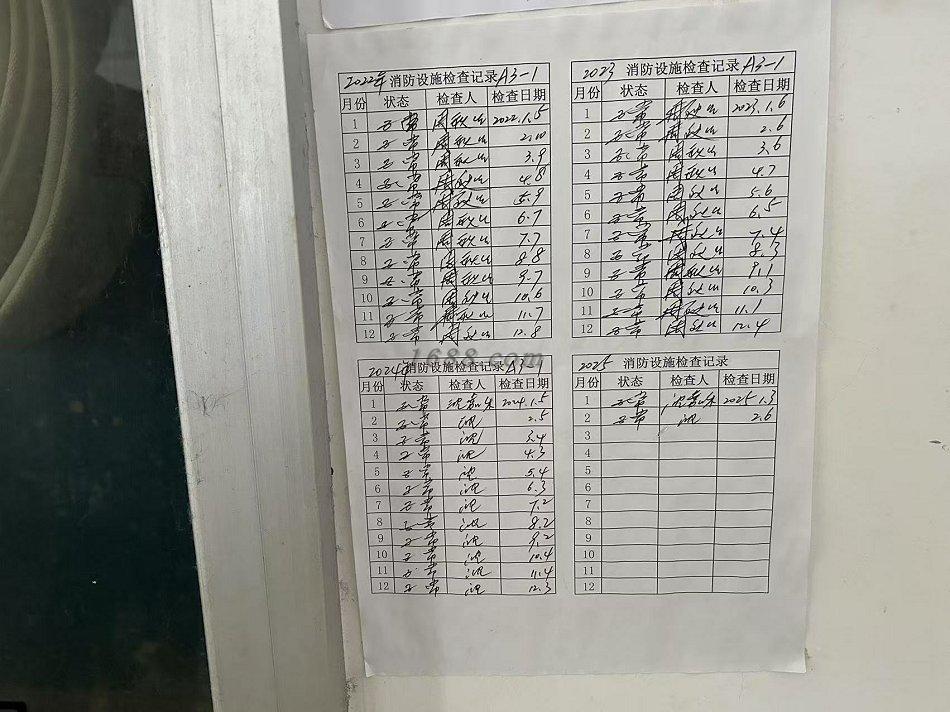 2022年 消防设施检查记录 A3-1
月份 状态 检查人 检查日期
1 正常 周秋山 2022.1.5
2 正常 周秋山 2.10
3 正常 周秋山 3.9
4 正常 周秋山 4.8
5 正常 周秋山 5.9
6 正常 周秋山 6.7
7 正常 周秋山 7.7
8 正常 周秋山 8.8
9 正常 周秋山 9.7
10 正常 周秋山 10.6
11 正常 周秋山 11.7
12 正常 周秋山 12.8
2023 消防设施检查记录 A3-1
月份 状态 检查人 检查日期
1 正常 周秋山 2023.1.6
2 正常 周秋山 2.6
3 正常 周秋山 3.6
4 正常 周秋山 4.7
5 正常 周秋山 5.6
6 正常 周秋山 6.5
7 正常 周秋山 7.4
8 正常 周秋山 8.3
9 正常 周秋山 9.1
10 正常 周秋山 10.3
11 正常 周秋山 11.1
12 正常 周秋山 12.4
1688.com
2024年 消防设施检查记录 A3-1
月份 状态 检查人 检查日期
1 正常 2024.1.5
2 正常 沈 2.5
3 正常 沈 3.4
4 正常 沈 4.3
5 正常 沈 5.4
6 正常 沈 6.3
7 正常 沈 7.2
8 正常 沈 8.2
9 正常 沈 9.2
10 正常 沈 10.4
11 正常 沈 11.4
12 正常 沈 12.3
2025 消防设施检查记录
月份 状态 检查人 检查日期
1 正常 2025.1.3
2 正常 沈 2.6
3
4
5
6
7
8
9
10
11
12